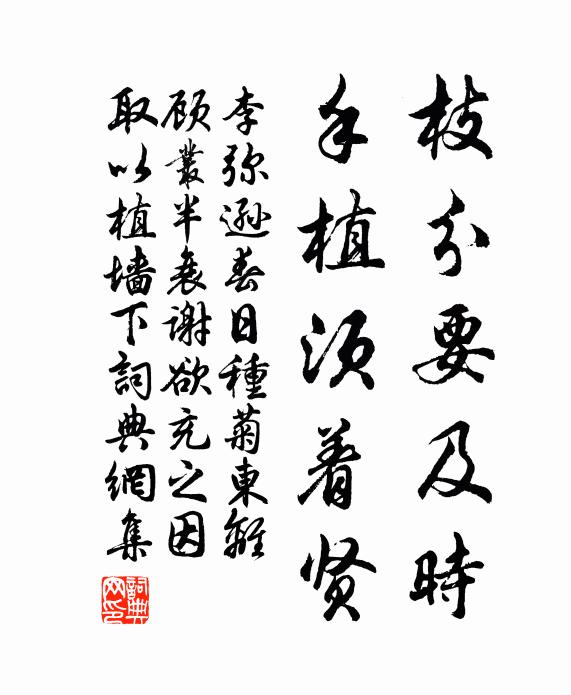 枝分要及時
手植須着贤
李弥遜春日種菊東離
顾叢半衰謝欲充之因
取以植墙下詞典網集
詞典网印